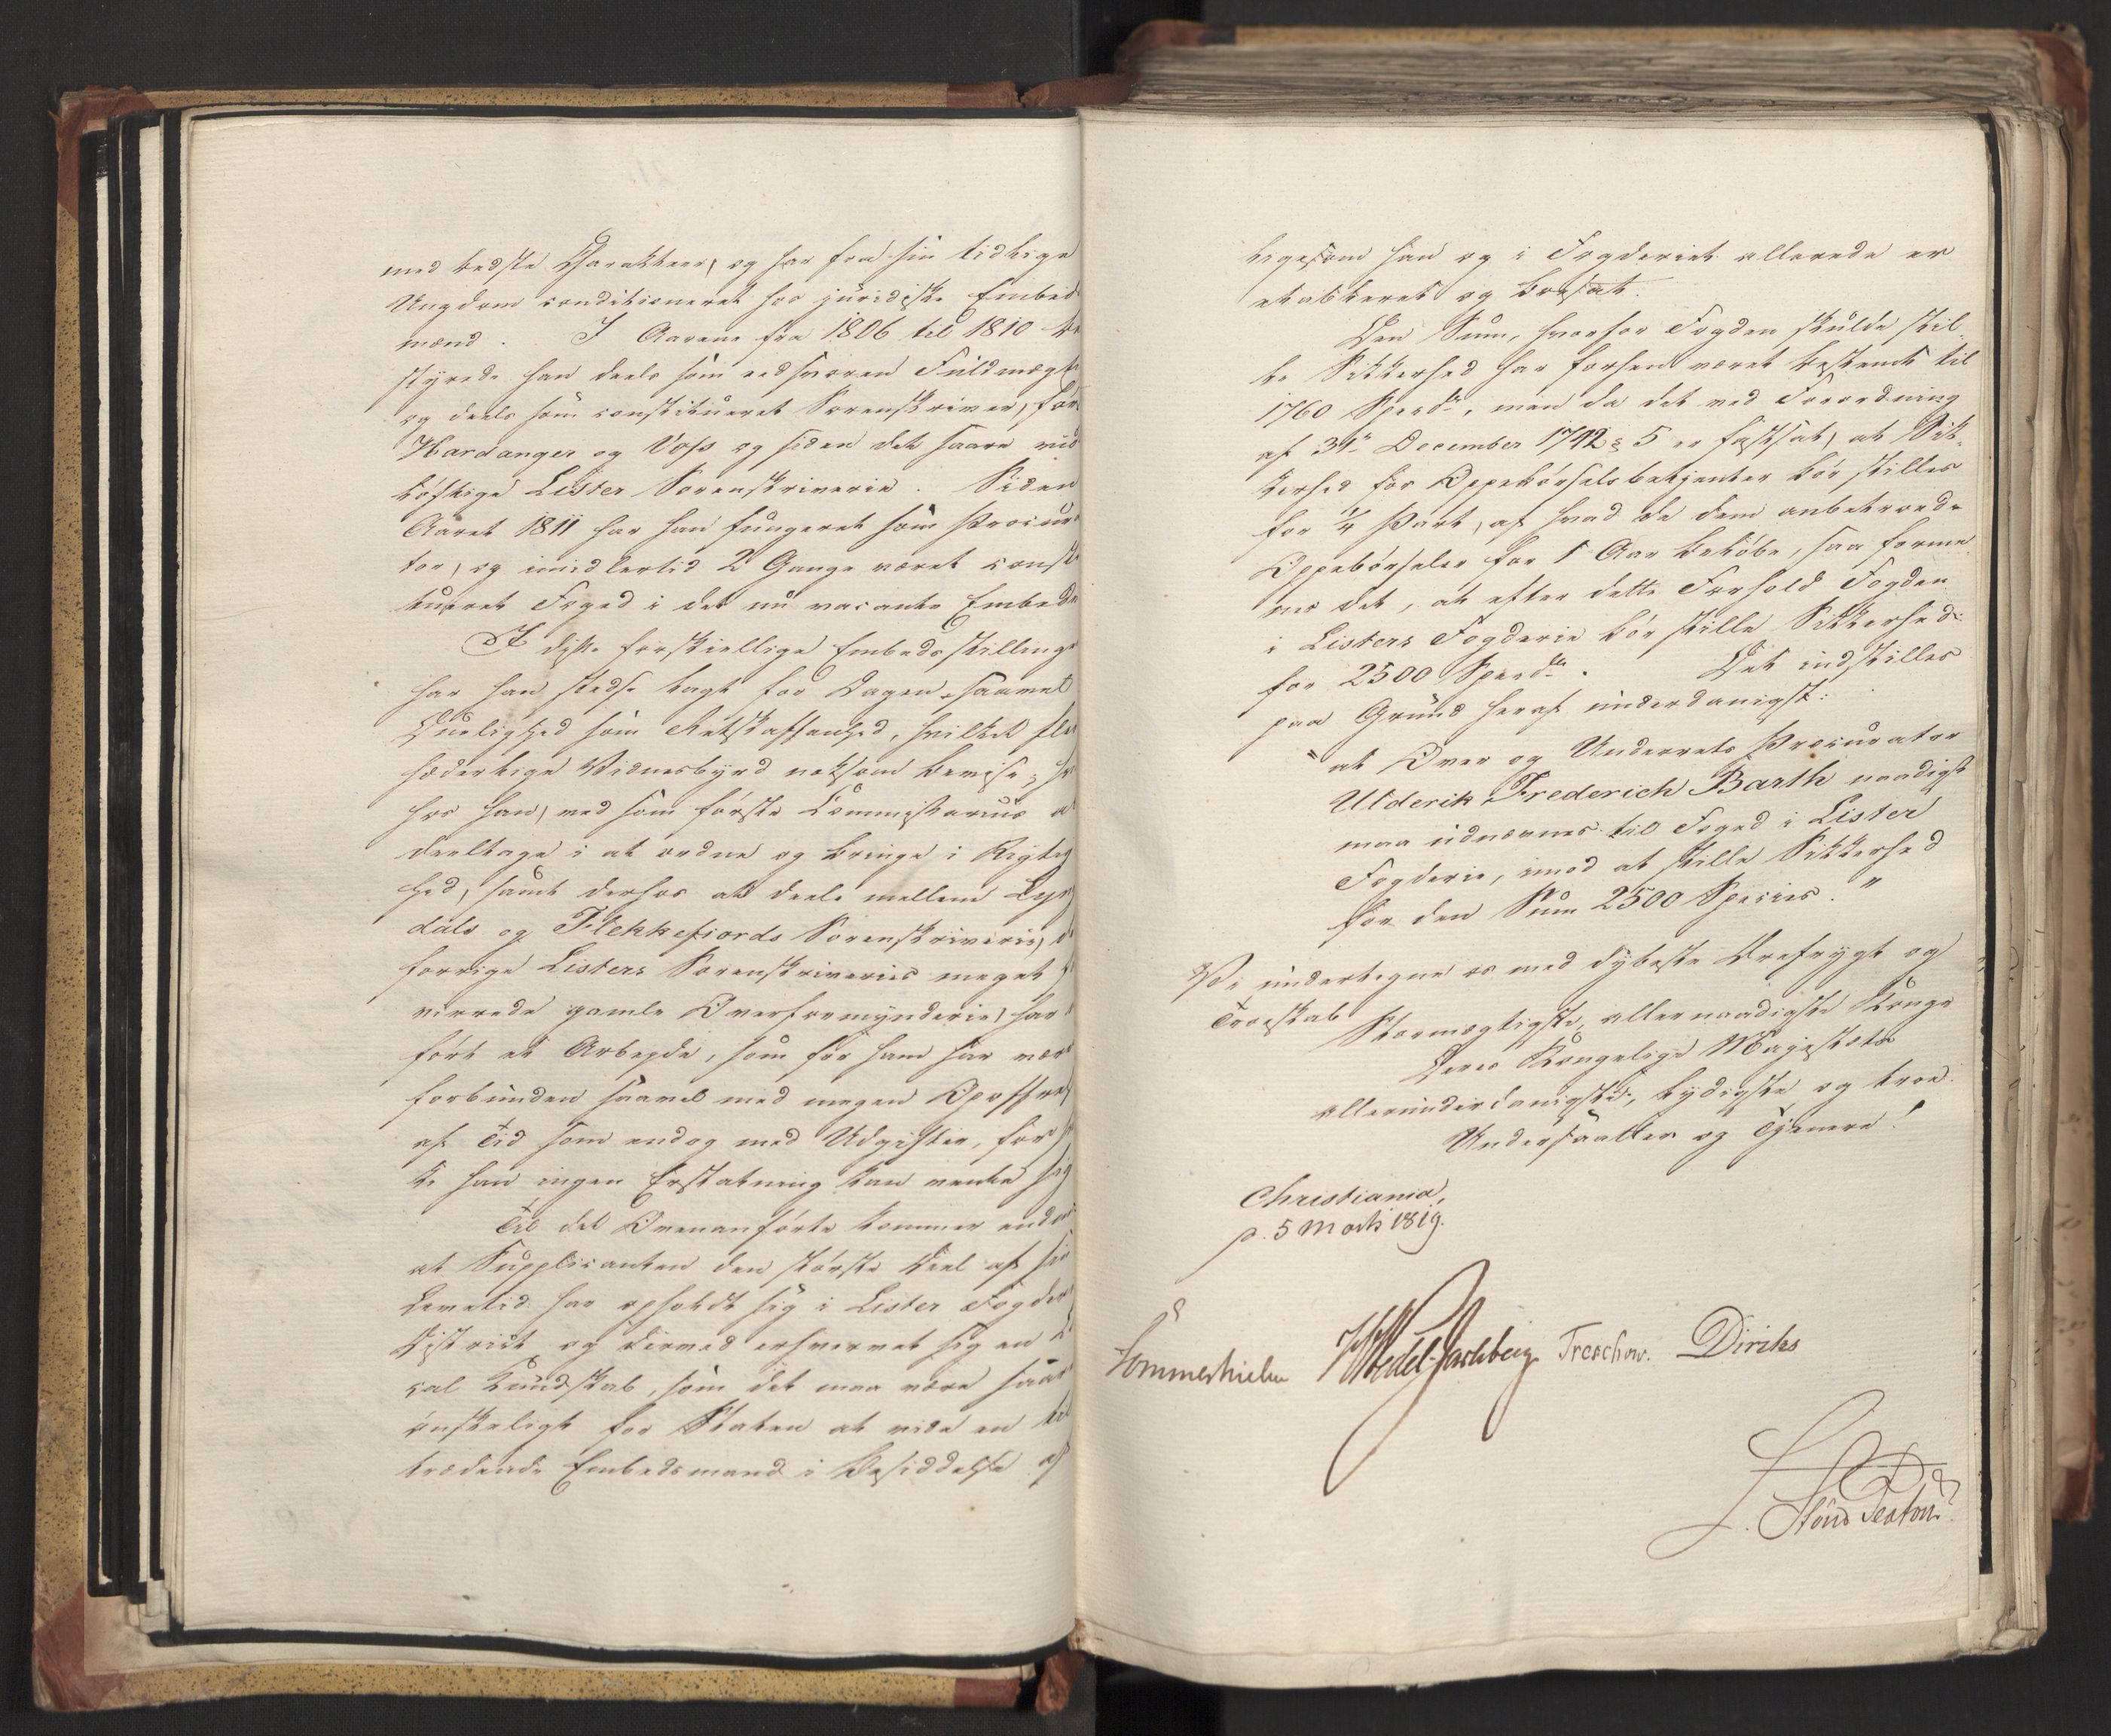 med bedste Charakteer, og har fra sin tidlige
Ungdom conditioneret hos juridiske Embeds
mænd. I Aarene fra 1806 til 1810 be
styrede han deels som eedsvoren Fuldmægti
og deels som constitueret Sorenskriver, før
Hardanger og Voss og siden det saare vid
løftige Lister Sorenskriverie. Siden
Aaret 1811 har han fungeret som Procura
tor, og imidlertid 2 Gange været consti
tueret Foged i det nu vacante Embede
I disse forskiellige Embedsstillinge
har han stedse lagt for Dagen saavel
Duelighed som Retskaffenhed, hvilket fle
hæderlige Vidnesbyrd noksom bevise,
hos han, ved som første Commissarius at
deeltage i at ordne og bringe i Rigtig
hed, samt derhos at deele mellem Lyng
dals og Flekkefiords Sorenskriverie, d
forrige Listers Sorenskriveries meget f
virrede gamle Overformynderie, har
ført et Arbeyde, som for ham har være
forbunden saavel med megen Opoffrelse
af Tid som endog med Udgifter, for
ke han ingen Erstatning kan vente sig
Til det Ovenanførte kommer endnu
at Supplicanten den største Deel af sin
Levetid har opholdt sig i Lister Fogderi
District og derved erhvervet sig en Lo
cal Kundskab, som det maa være saare
ønskeligt for Staten at vide en til
trædende Embedsmand i Besiddelse af
ligesom han og i Fogderiet allerede er
etableret og bosat.
Den Sum, hvorfor Fogden skulde stil
le Sikkerhed har forhen været bestemt til
1760 Specd, men da det ved Forordning
af 31te December 1742 § 5 er fastsat, at Sik
kerhed for Oppebørselsbetjenter bør stilles
for 1/4 Part, af hvad de dem anbetroede
Oppebørseler for 1 Aar beløbe, saa forme
nes det, at efter dette Forhold Fogden
i Listers Fogderie bør stille Sikkerhed
for 2500 Specdlr. Det indstilles
paa Grund heraf underdanigst:
"at Over og Underrets Procurator
Ulderik Frederich Barth naadigst
maa udnævnes til Foged i Lister
Fogderie, imod at stille Sikkerhed
for den Sum 2500 Species."
Vi undertegne os med dybeste Ærefrygt og
Troeskab
Stormægtigste, allernaadigste Konge
Deres Kongelige Majestæts
allerunderdanigste, lydigste og troe
Undersaatter og Tjenere!
Christiania,
p. 5 Marts 1819.
Sommerhielm Wedel-Jarlsberg Treschow. Diriks